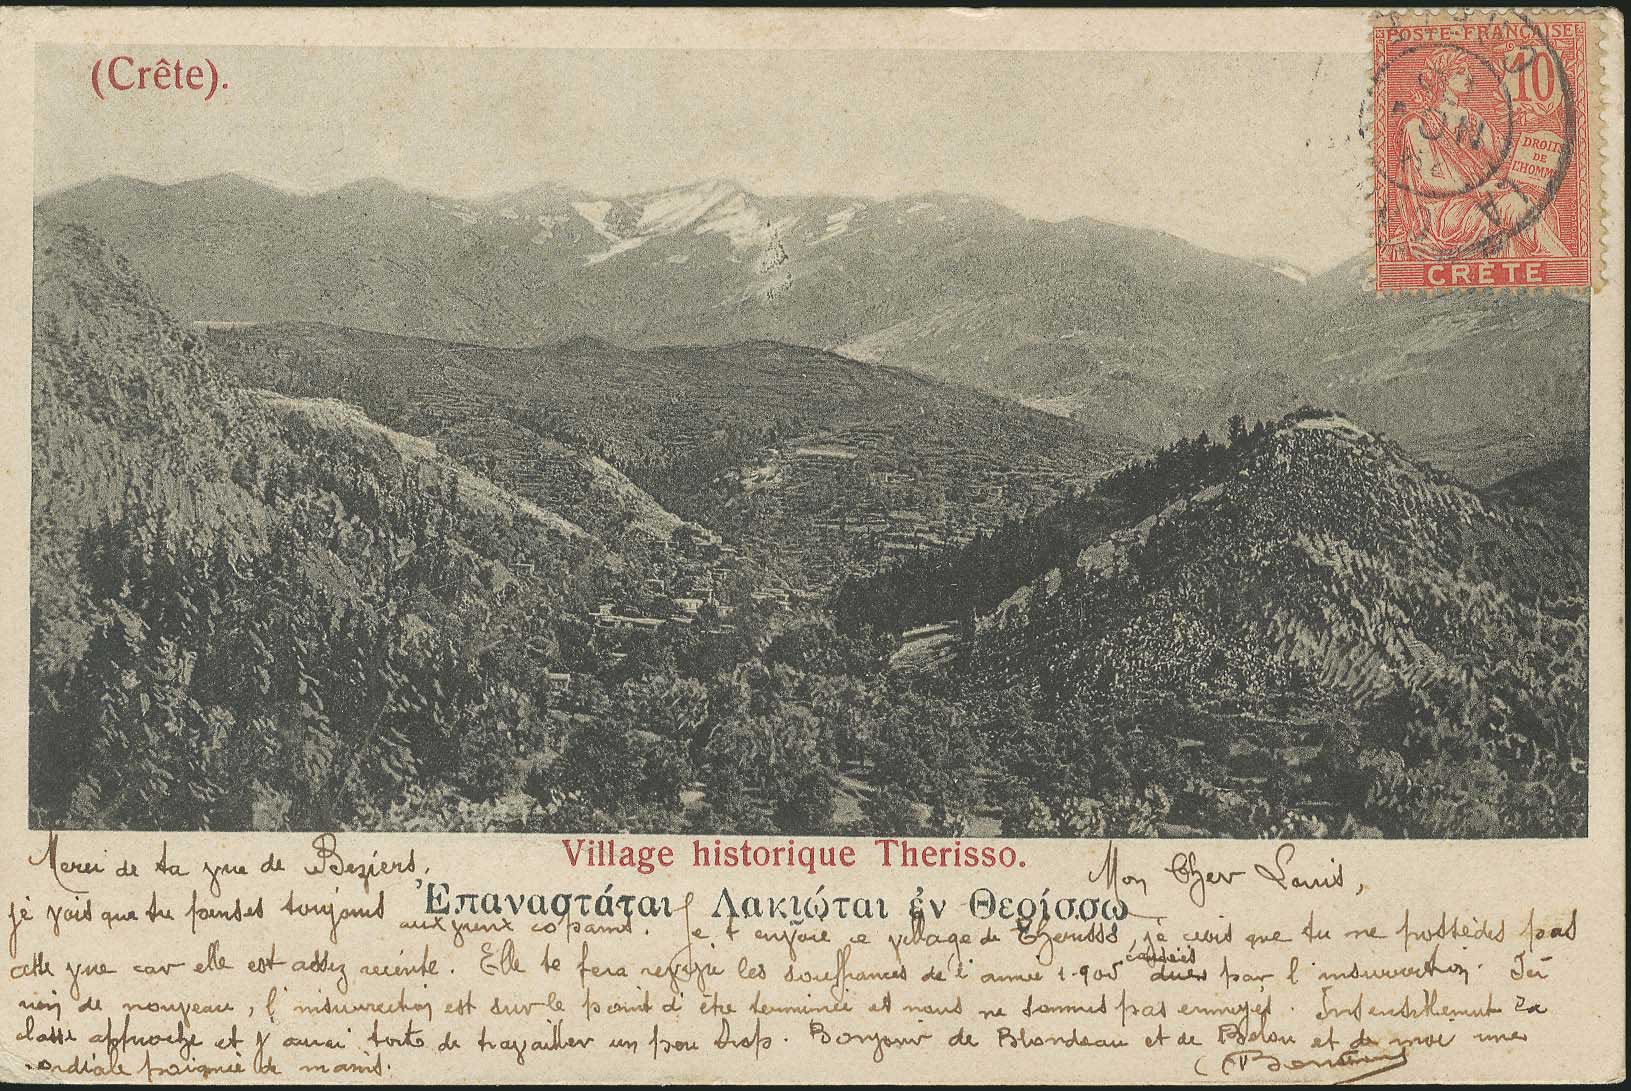 (Crête).
POSTE FRANÇAISE
10
DROITS
DE
L'HOMME
CRÈTE
Village historique Therisso.
Ἐπαναστάται Λακιώται ἐν Θερίσσῳ
Mon Cher Louis,
Merci de ta vue de Beziers,
je vois que tu penses toujours aux vieux copains. Je t'envoie ce village de Therisso, je crois que tu ne possèdes pas
cette vue car elle est assez récente. Elle te fera revivre les souffrances de l'année 1905 causées dues par l'insurrection. Ici
rien de nouveau, l'insurrection est sur le point d'être terminée et nous ne sommes pas ennuyés. Insensiblement la
classe approche et j'aurai torts de travailler un peu trop. Bonjour de Blondeau et de Belou et de moi une
cordiale poignée de mains.